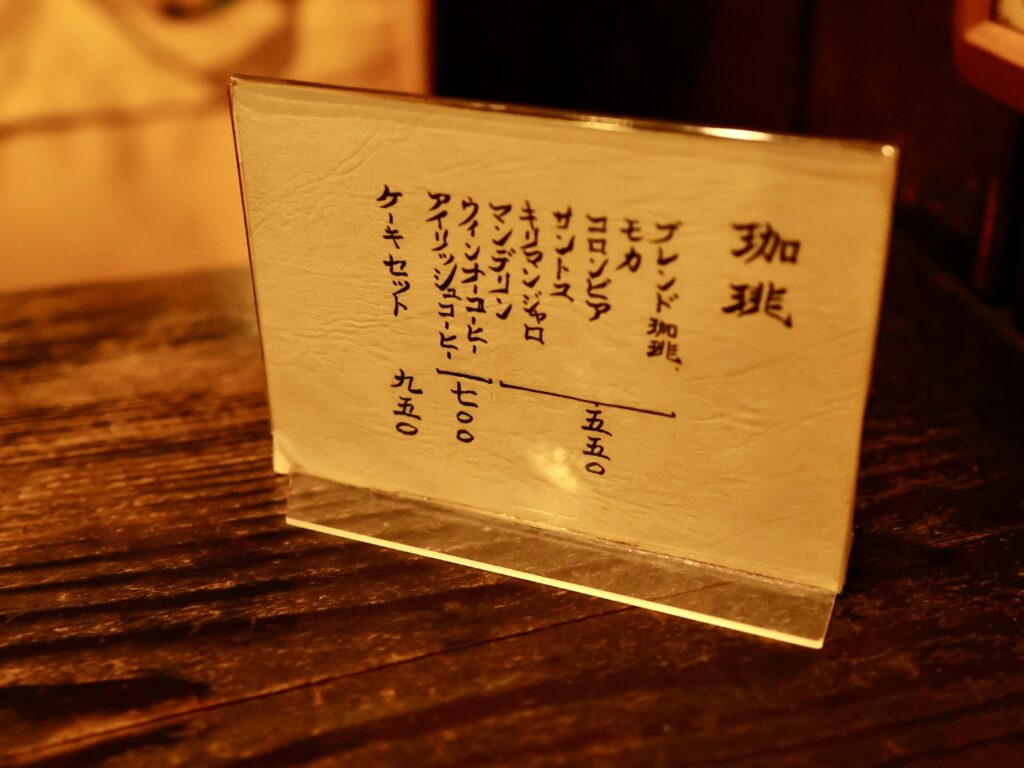 珈琲
ブレンド珈琲
モカ
コロンビア
サントス
キリマンジャロ
マンデリン
五五〇
ウインナーコーヒー
アイリッシュコーヒー
七〇〇
ケーキセット 九五〇